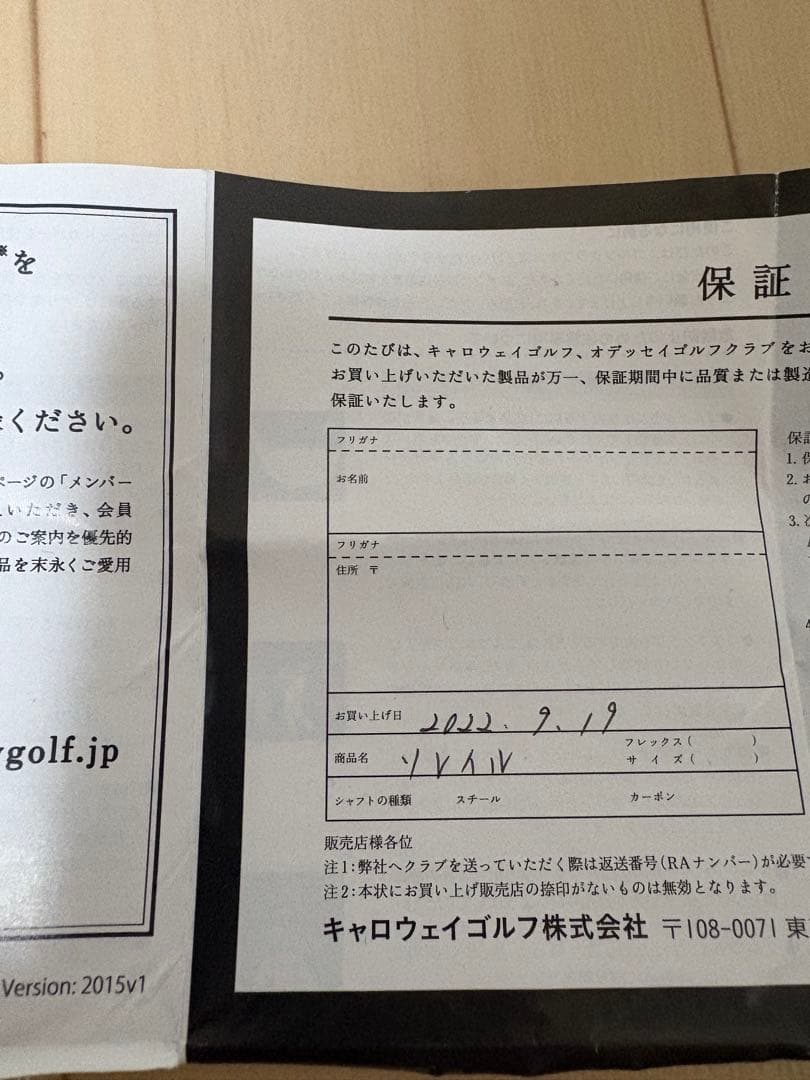 ※を
ください。
ページの「メンバー
いただき、会員
のご案内を優先的
品を末永くご愛用
golf.jp
Version: 2015v1
保証
このたびは、キャロウェイゴルフ、オデッセイゴルフクラブをお
お買い上げいただいた製品が万一、保証期間中に品質または製造
保証いたします。
フリガナ
お名前
フリガナ
住所 〒
お買い上げ日 2022.9.19
商品名 ソレイル フレックス( )
サイズ( )
シャフトの種類 スチール カーボン
保証
1.
2. お
の
3.
販売店様各位
注1:弊社へクラブを送っていただく際は返送番号(RAナンバー)が必要で
注2:本状にお買い上げ販売店の捺印がないものは無効となります。
キャロウェイゴルフ株式会社 〒108-0071 東